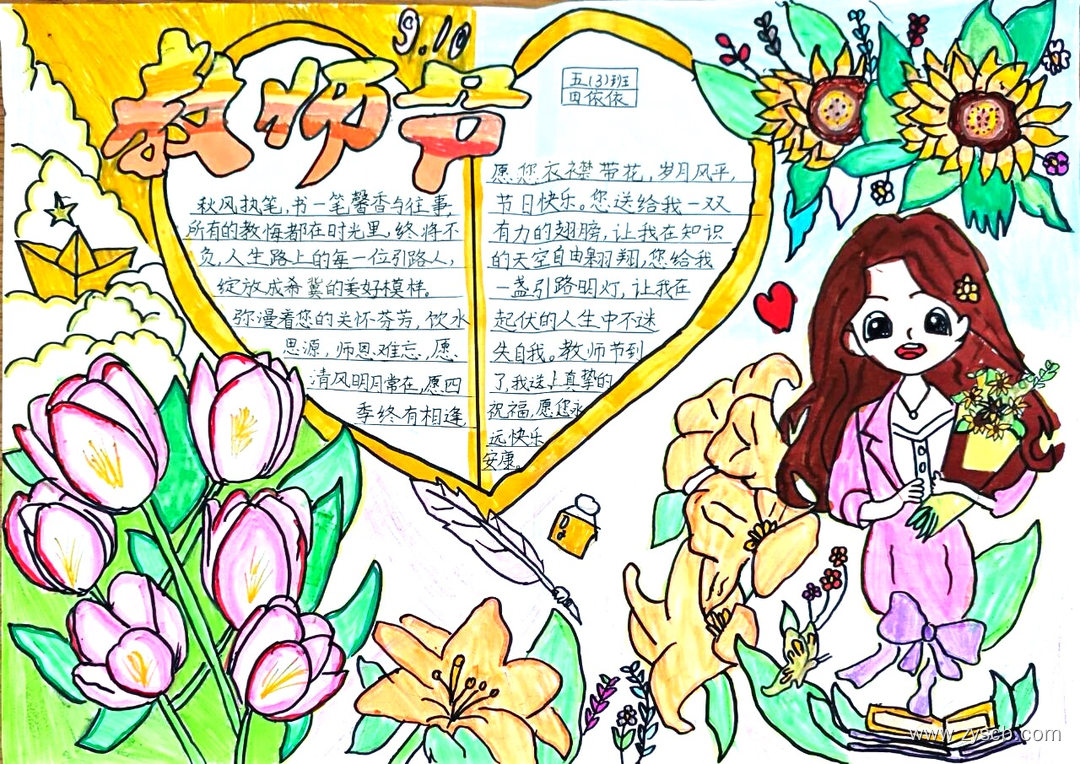 9.10
教师节
五(3)班
田依依
秋风执笔,书一笔馨香与往事,
所有的教悔都在时光里,终将不
负,人生路上的每一位引路人,
绽放成希冀的美好模样。
弥漫着您的关怀芬芳,饮水
思源,师恩难忘,愿
清风明月常在,愿四
季终有相逢
愿您衣襟带花,岁月风平,
节日快乐。您送给我一双
有力的翅膀,让我在知识
的天空自由翱翔,您给我
一盏引路明灯,让我在
起伏的人生中不迷
失自我。教师节到
了,我送上真挚的
祝福,愿您永
远快乐
安康。
www.zyscb.com